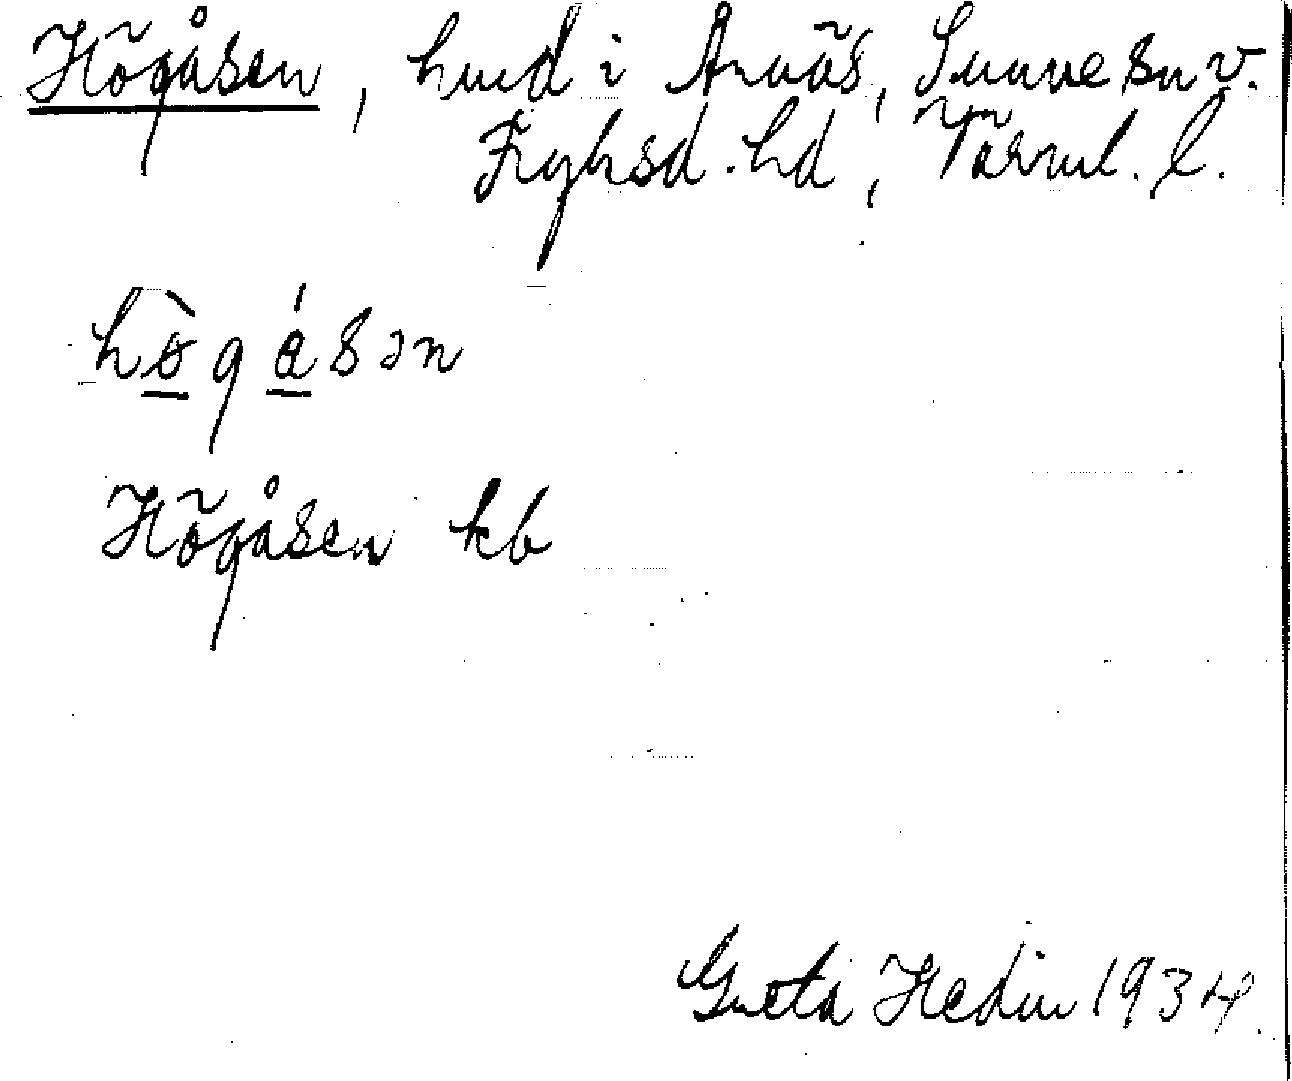 Högåsen, hmd i Arnäs, Sunne sn v.
Fryksd. hd, Värml. l.
hø̀gásən
Högåsen kb
Greta Hedin 1934.